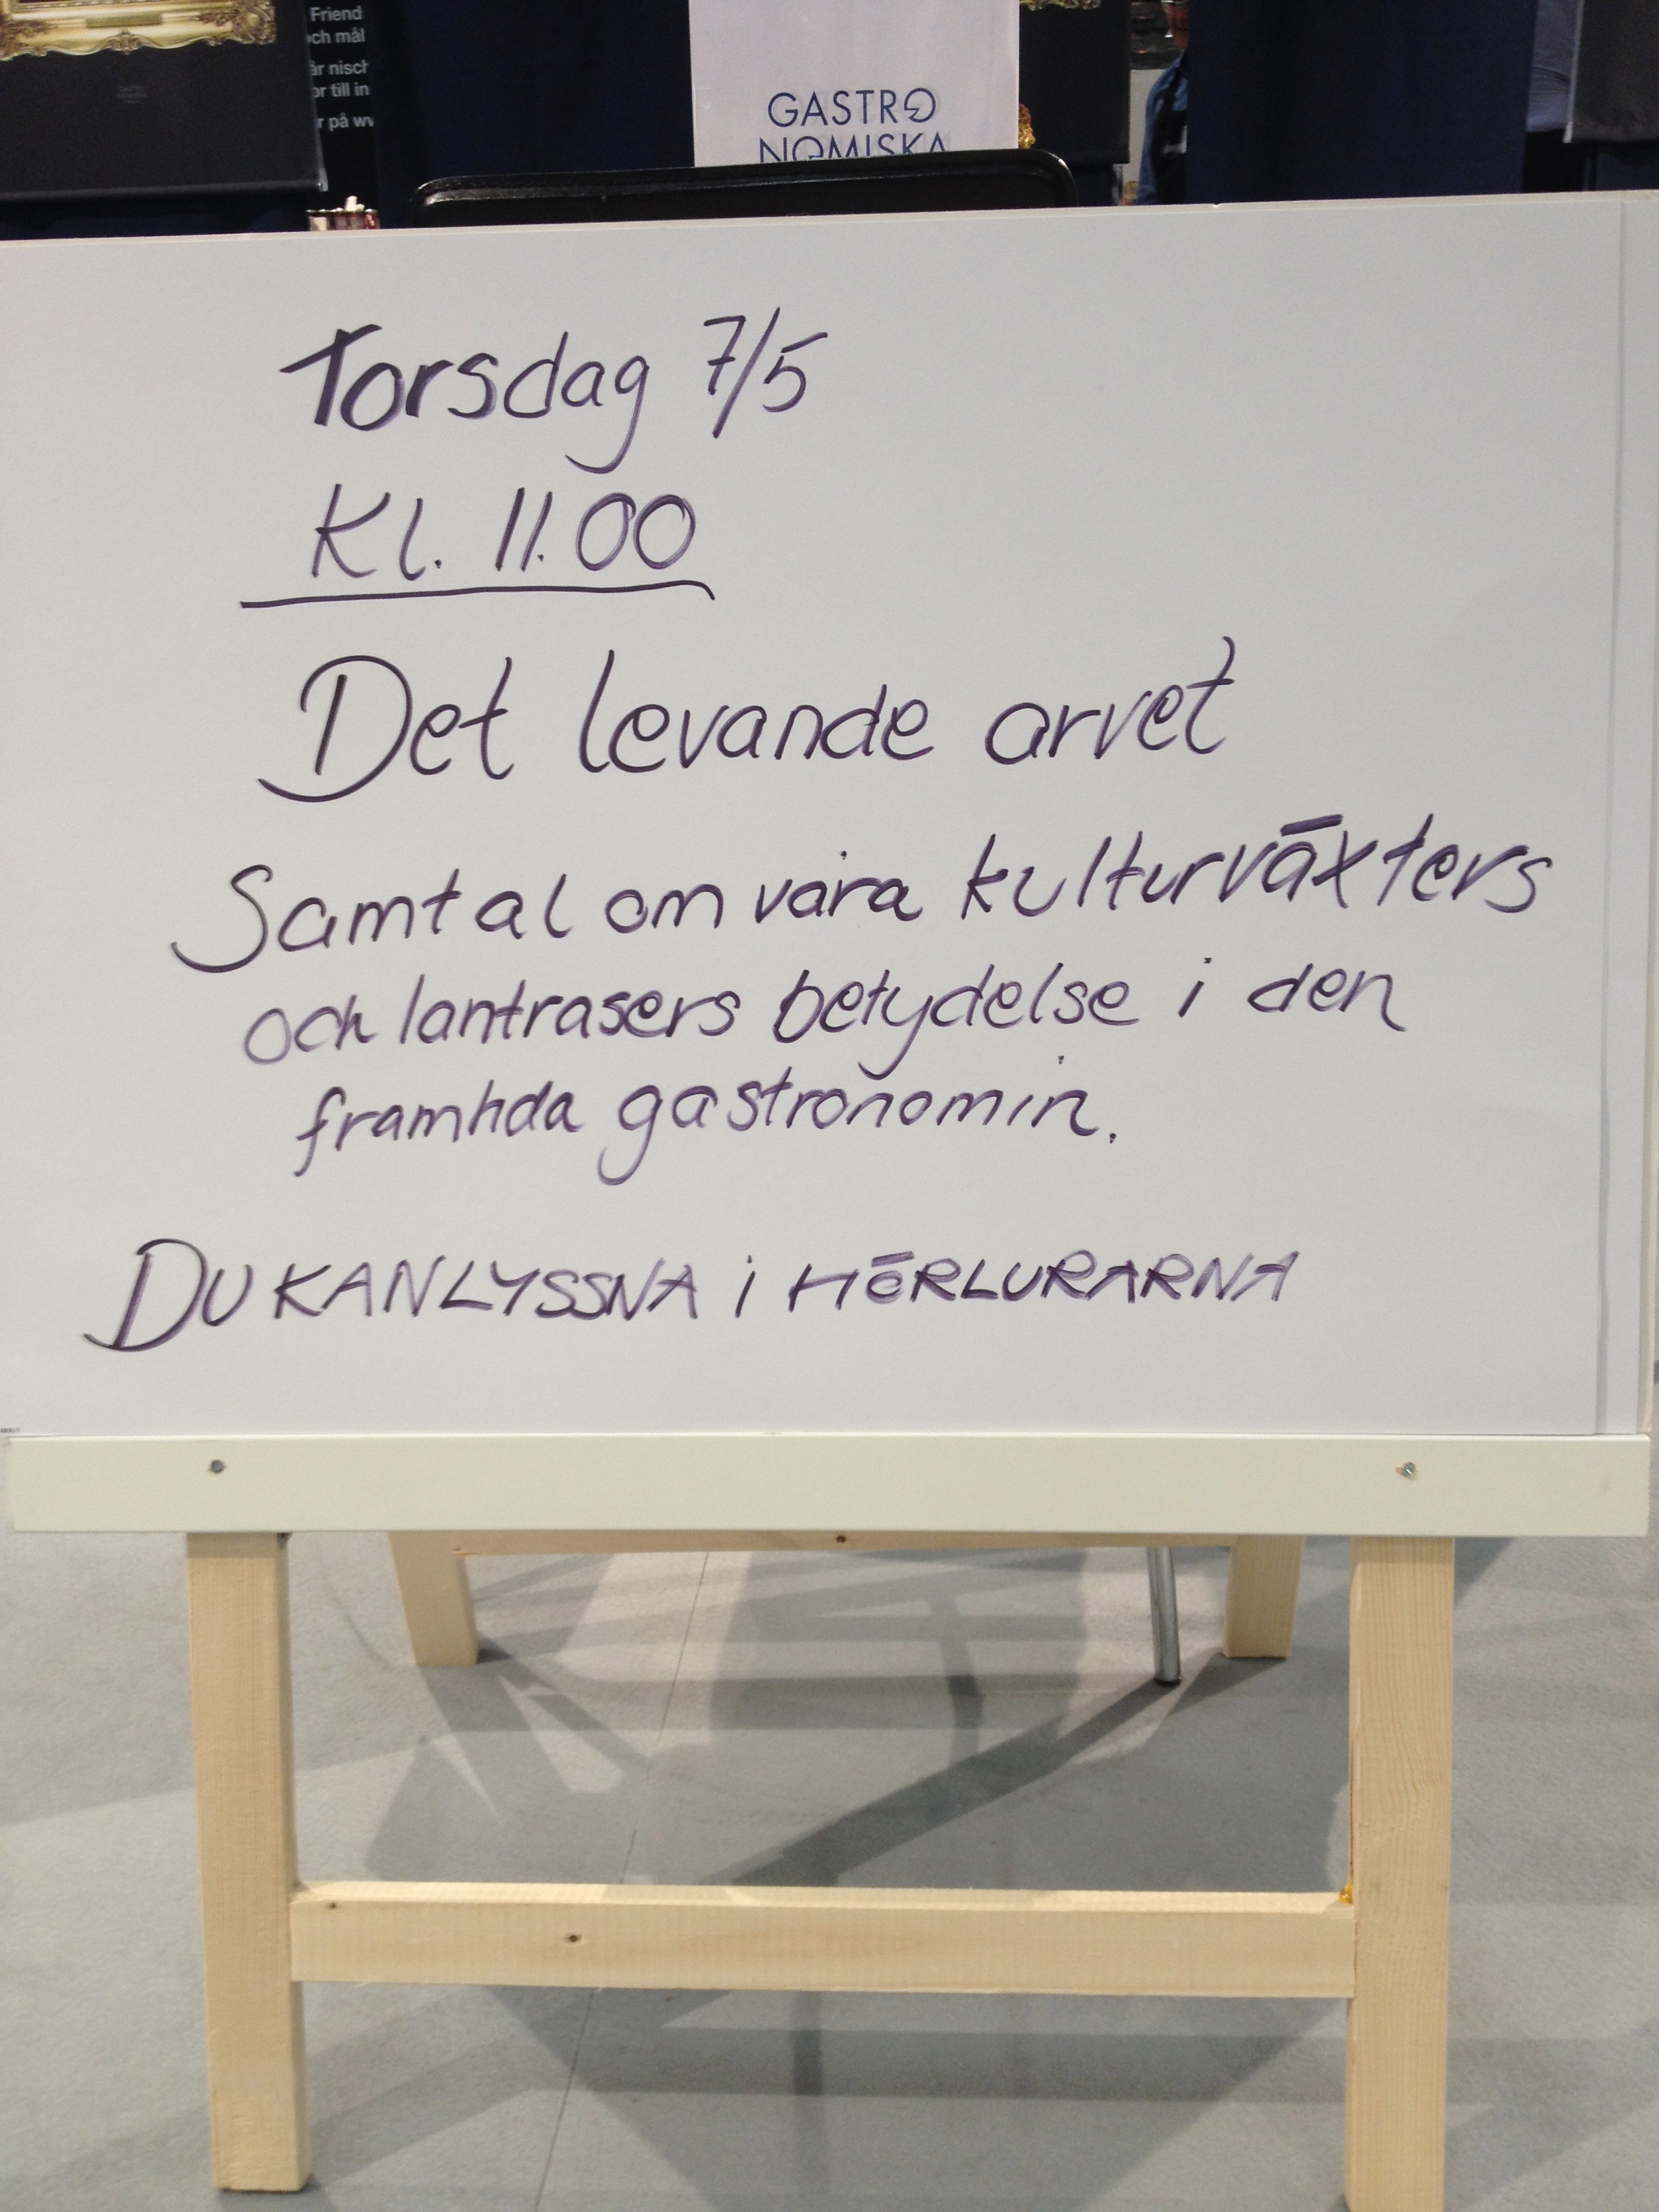 Friend
och mål
är nisch
or till in
r på wv
GASTRO
NOMISKA
Torsdag 7/5
Kl. 11.00
Det levande arvet
Samtal om våra kulturväxters
och lantrasers betydelse i den
framtida gastronomin.
DU KAN LYSSNA i HÖRLURARNA